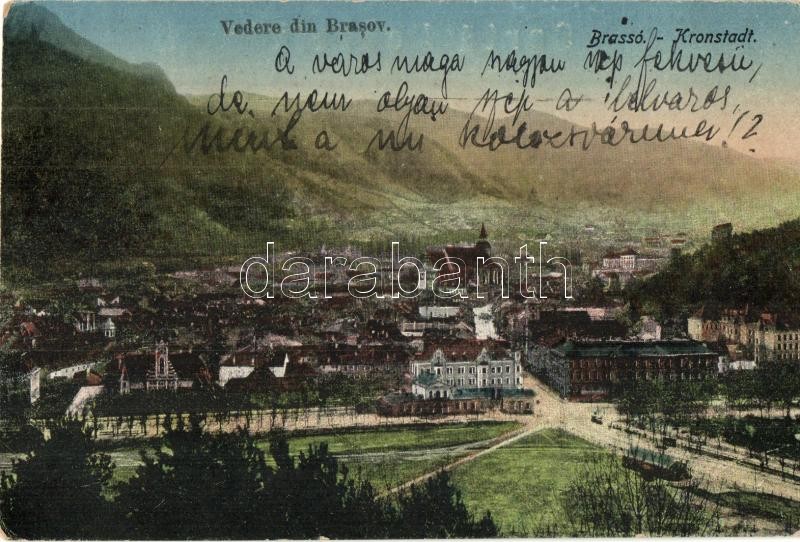 Vedere din Brașov.
Brassó. - Kronstadt.
A város maga nagyon szép fekvésü,
de nem olyan szép a belváros,
Mint a mi Kolozsvárunk!?
darabanth